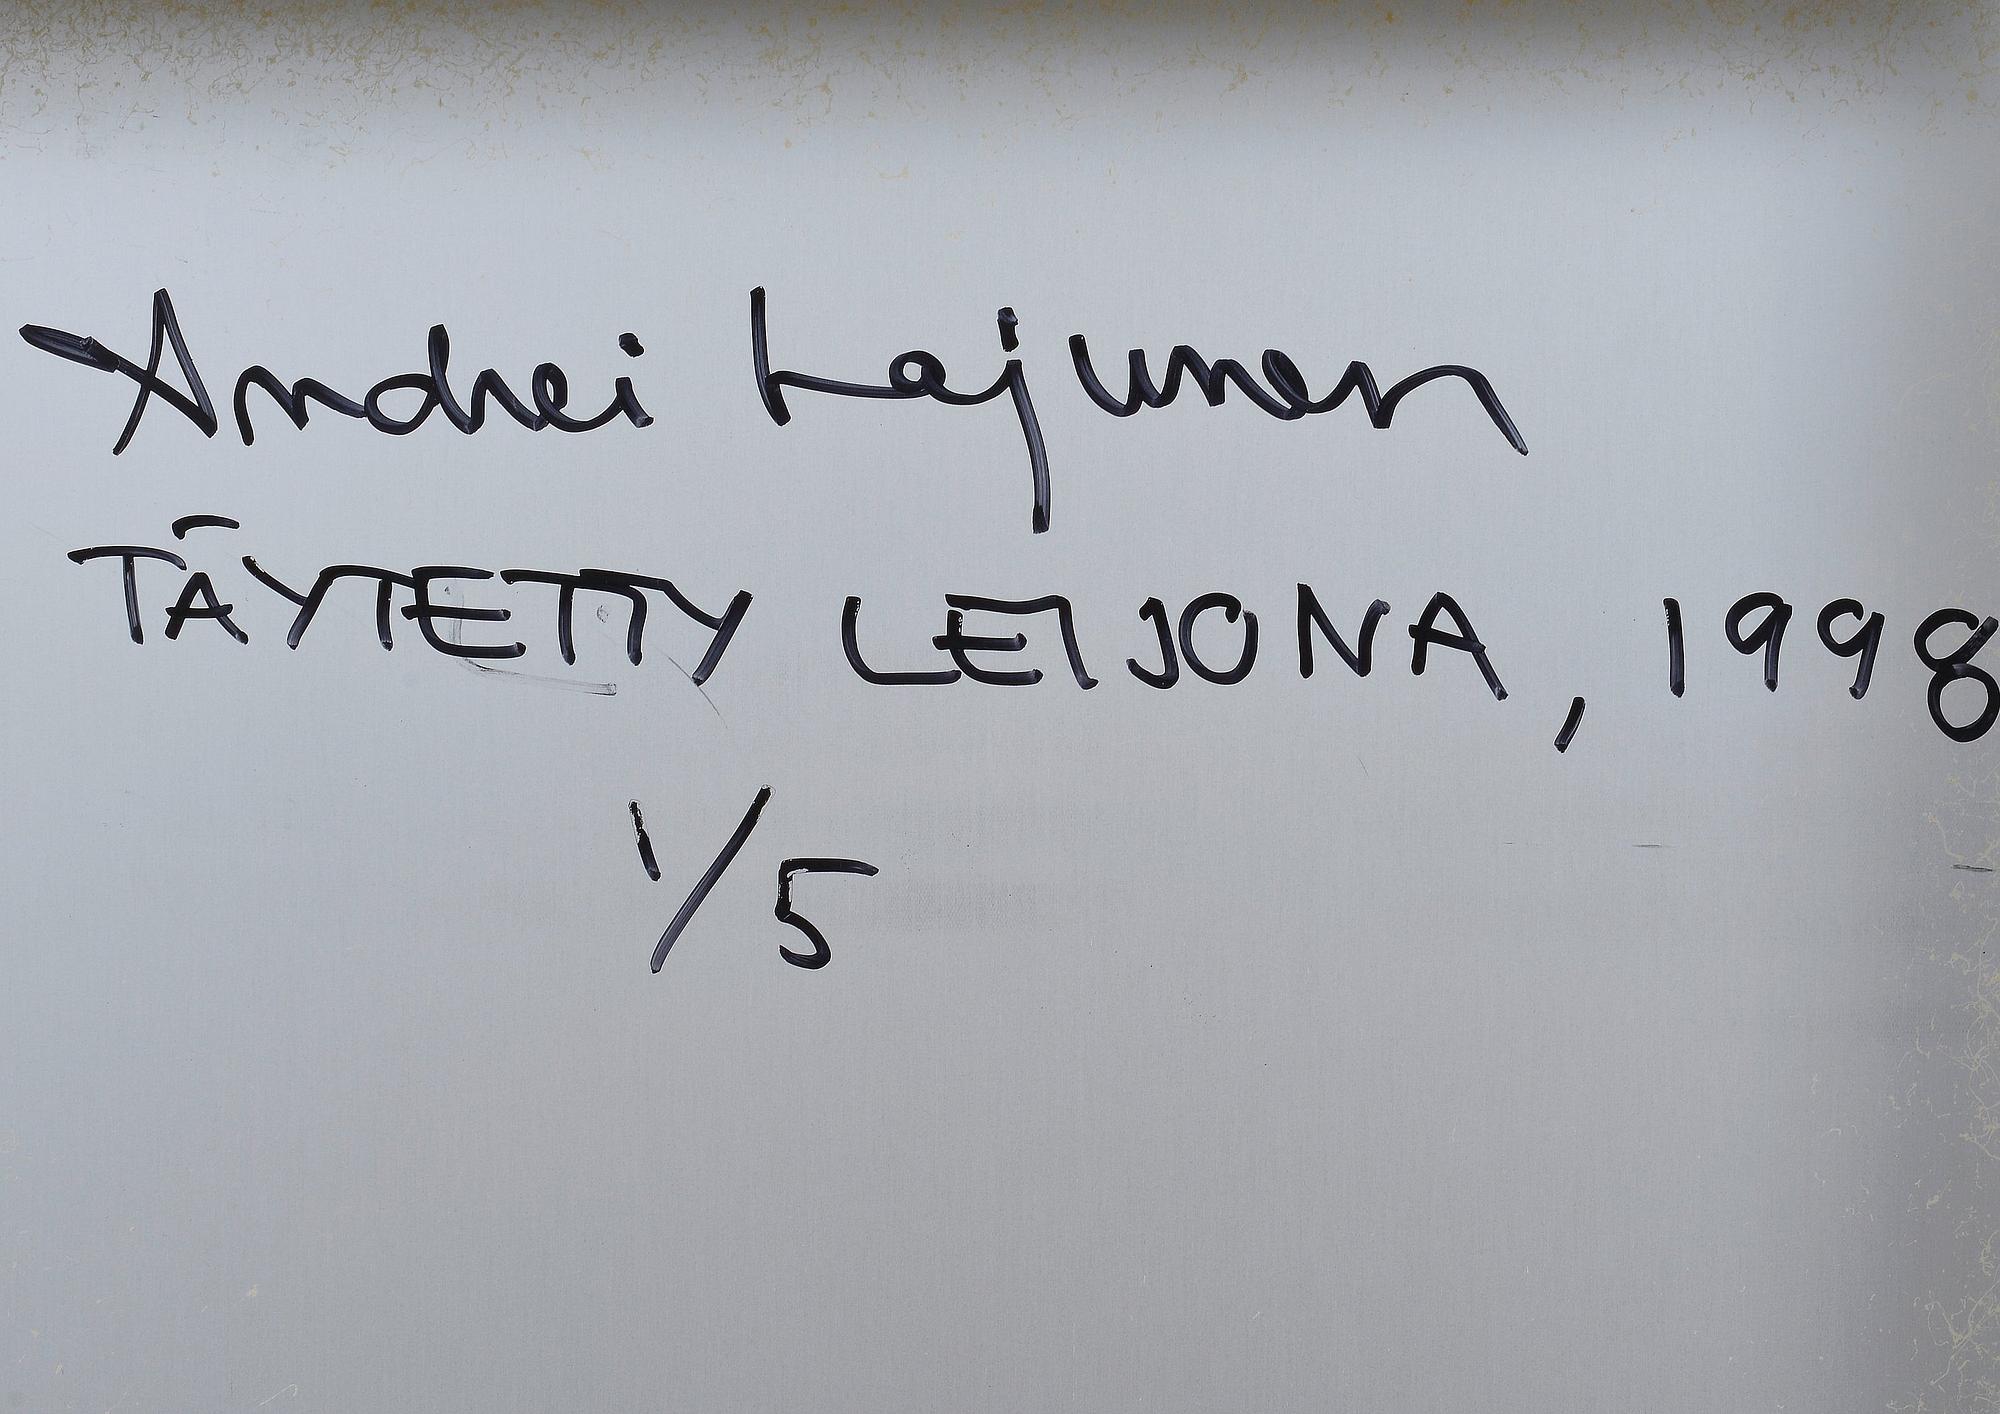 Andrei Lajunen
TÄYTETTY LEIJONA, 1998
1/5